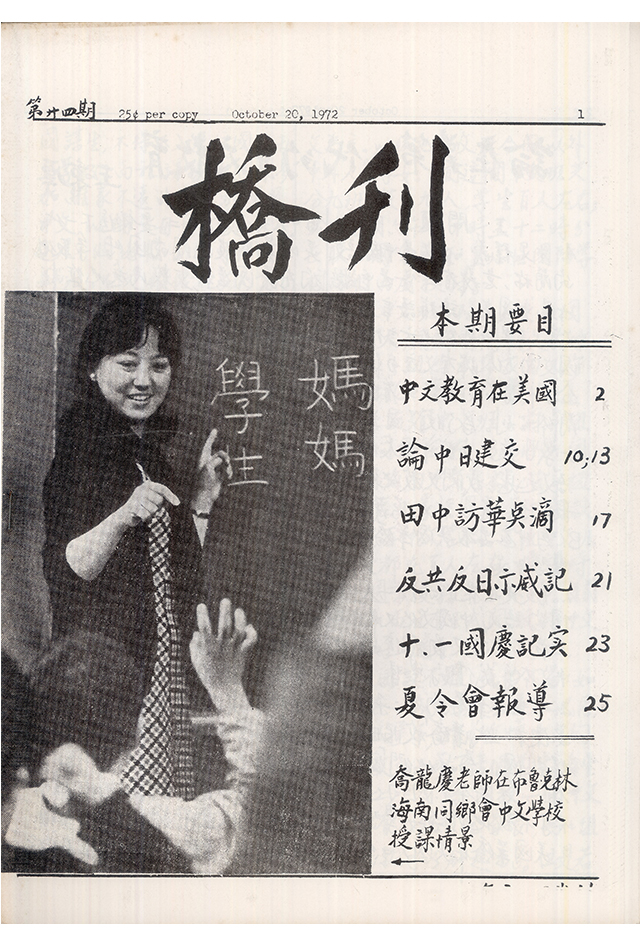 第廿四期 25¢ per copy October 20, 1972 1
橋刊
學生
媽媽
本期要目
中文教育在美國 2
論中日建交 10,13
田中訪華點滴 17
反共反日示威記 21
十.一國慶記实 23
夏令會報導 25
喬龍慶老師在布魯克林
海南同鄉會中文學校
授課情景